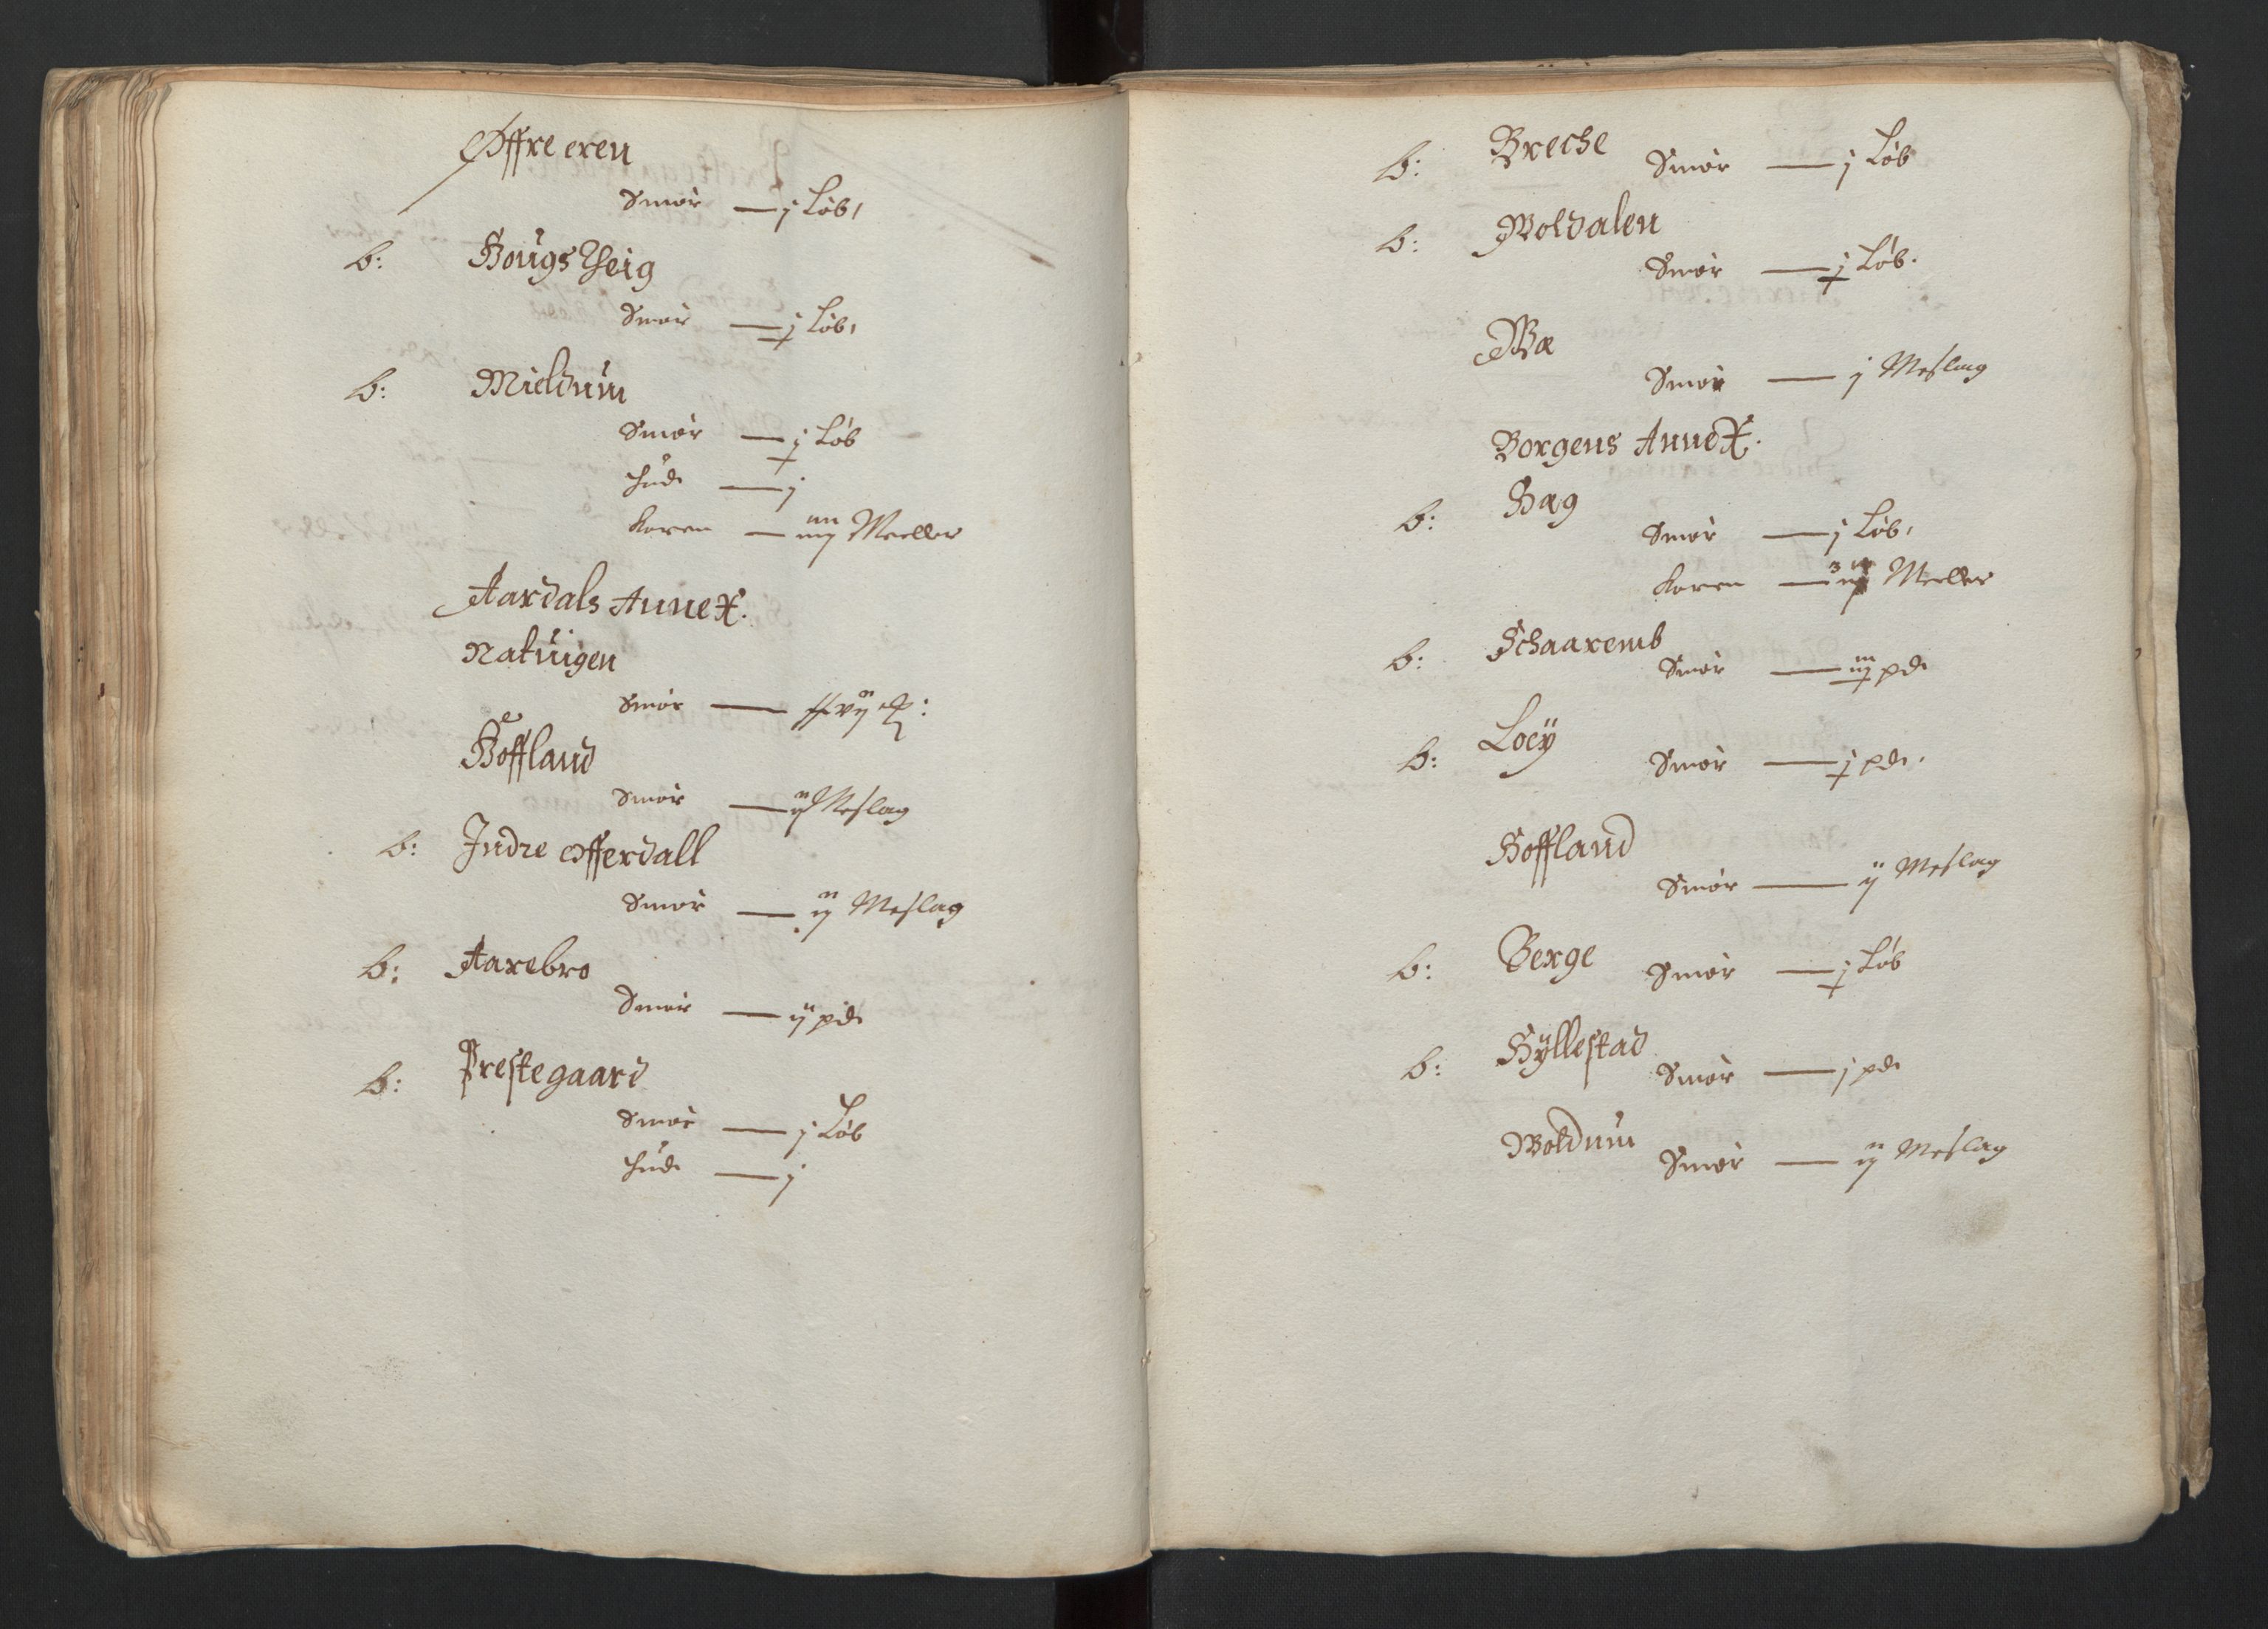 Øffre eren
Smør — j Løb,
b: Hougs Heig
Smør — j Løb,
b: Mieldum
Smør — j Løb
Hud — j
Koren — iiij Meeller
Aardals Annex.
Natuigen
Smør —
Hoffland
Smør — ij Meslag
b: Indre Offerdall
Smør — ij Meslag
b: Aarebro
Smør — ij pd
b: Prestegaard
Smør — j Løb
Hud — j
b: Breche Smør — j Løb
b: Woldalen
Smør — j Løb.
Wæ
Smør — j Meslag
Borgens Annex.
b: Hæg
Smør — j Løb,
Koren — Meeller
b: Schaaremb
Smør — iij pd
b: Loey
Smør — j pd.
Hoffland
Smør — ij Meslag
b: Berge Smør — j Løb
b: Hÿllestad
Smør — j pd
Woldum Smør — ij Meslag